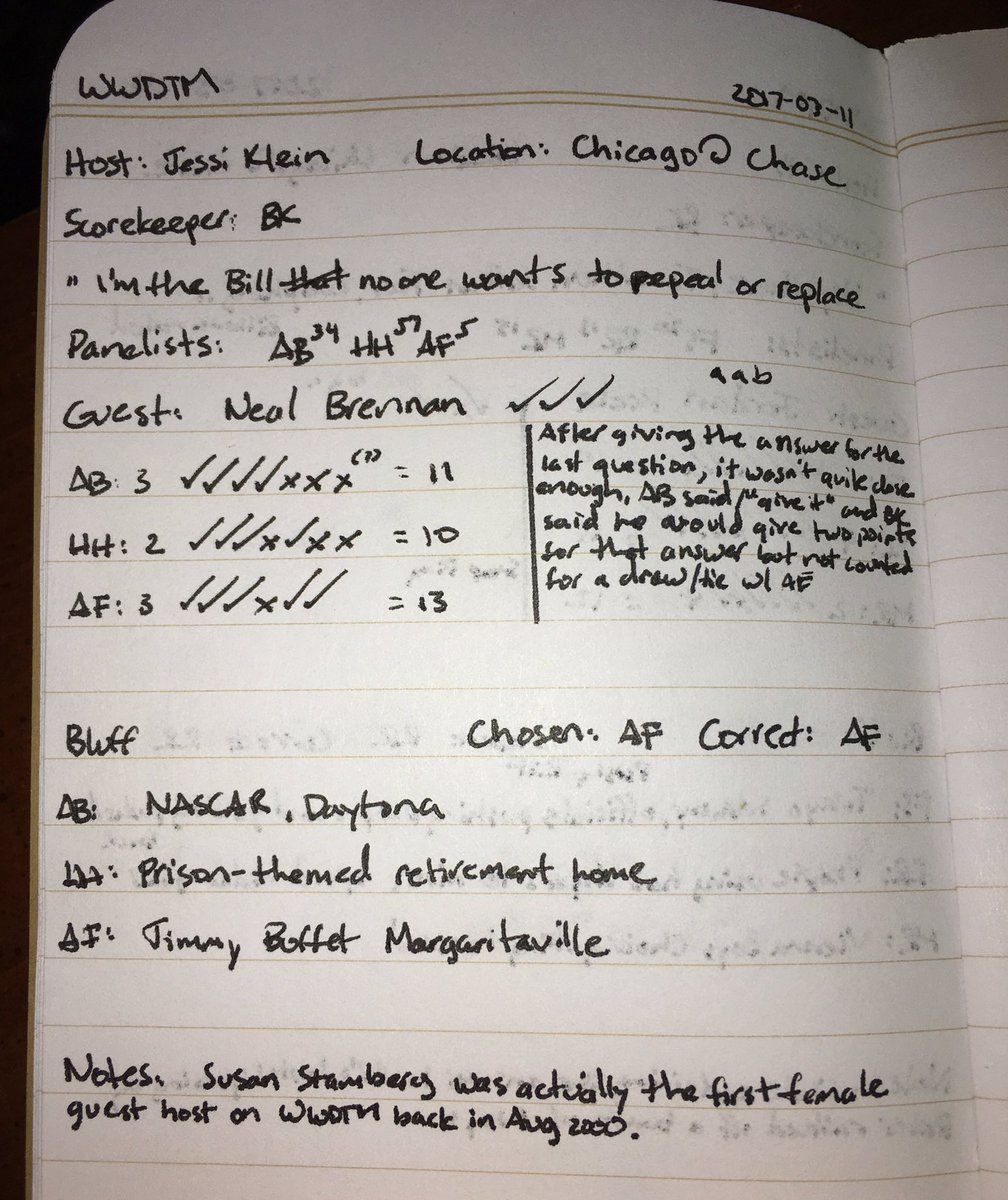 WWDTM 2017-03-11
Host: Jessi Klein Location: Chicago@Chase
Scorekeeper: BK
" I'm the Bill that no one wants to repeal or replace
Panelists: AB³⁴ HH⁵⁷ AF⁵
a a b
Guest: Neal Brennan ✓✓✓
AB: 3 ✓✓✓✓xxx⁽?⁾ = 11
HH: 2 ✓✓✓x✓xx = 10
AF: 3 ✓✓✓x✓✓ = 13
After giving the answer for the
last question, it wasn't quite close
enough, AB said "give it" and BK
said he would give two points
for that answer but not counted
for a draw/tie w/ AF
Bluff Chosen: AF Correct: AF
AB: NASCAR, Daytona
HH: Prison-themed retirement home
AF: Jimmy Buffet Margaritaville
Notes. Susan Stamberg was actually the first female
guest host on WWDTM back in Aug 2000.